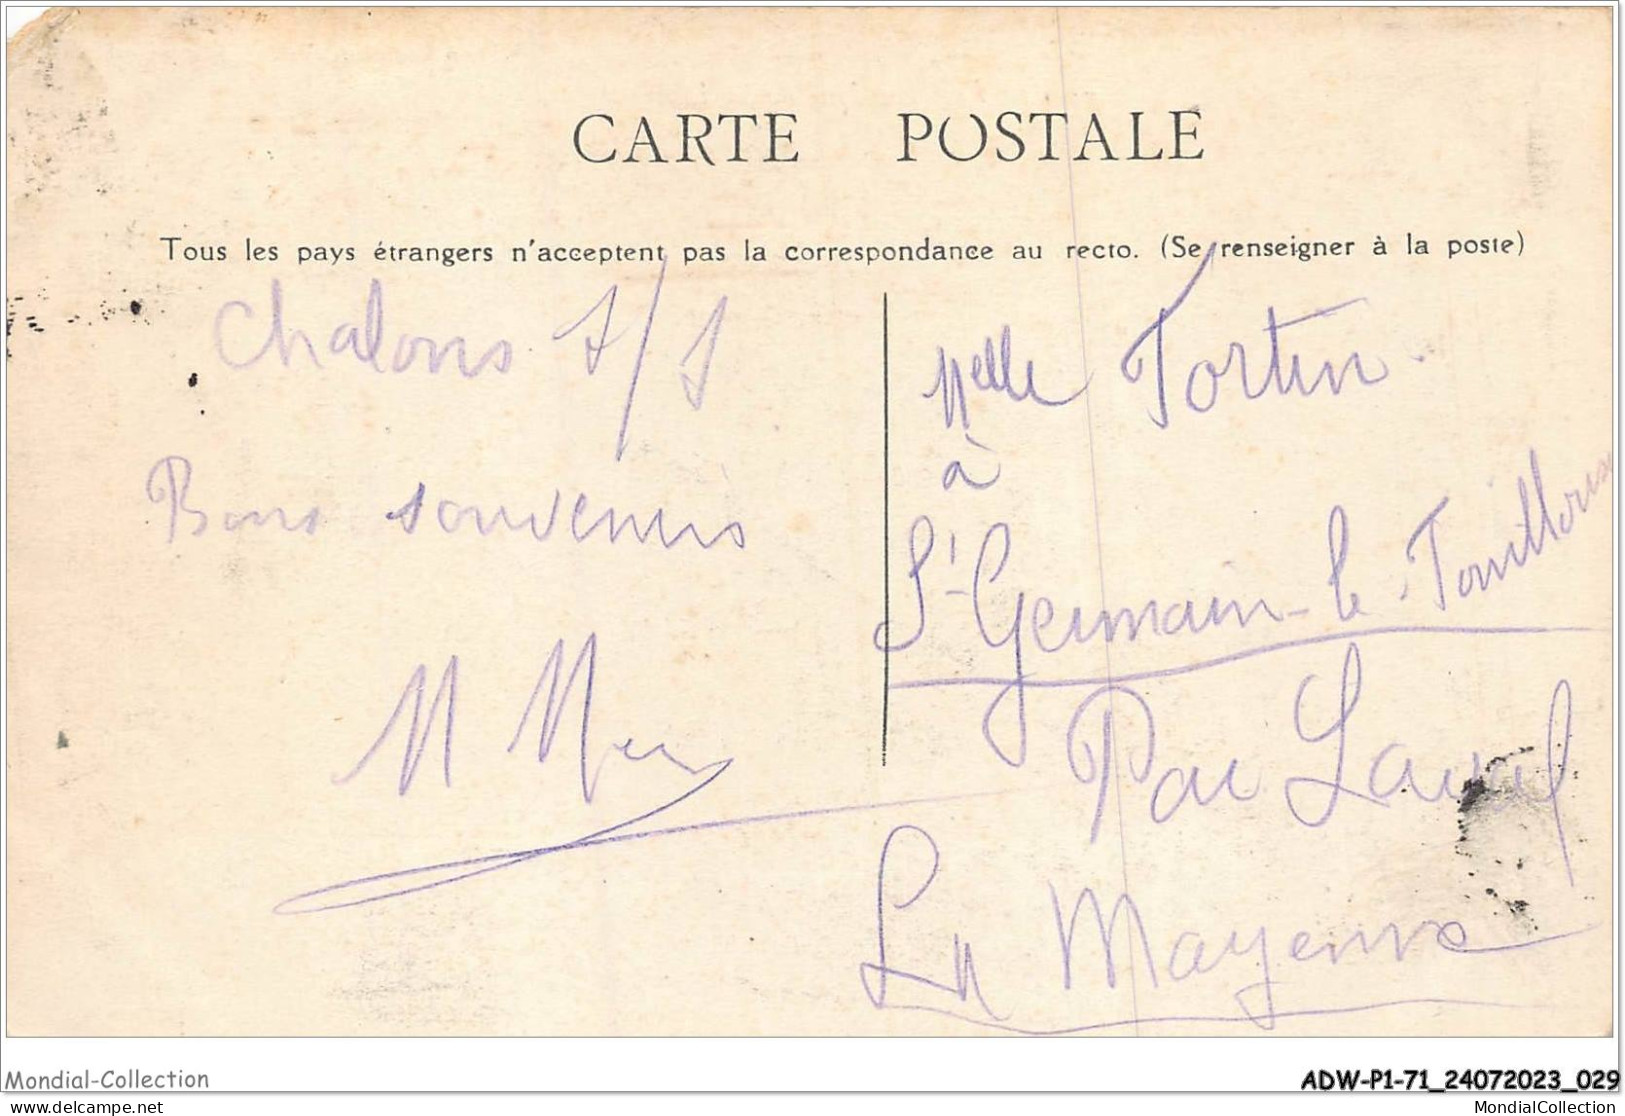 CARTE POSTALE
Tous les pays étrangers n'acceptent pas la correspondance au recto. (Se renseigner à la poste)
Chalons s/S
Bons souvenirs
Melle Tortin
à
St-Germain-le-Fouilloux
Par Laval
La Mayenne
Mondial-Collection
ADW-P1-71_24072023_029
delcampe.net
MondialCollection